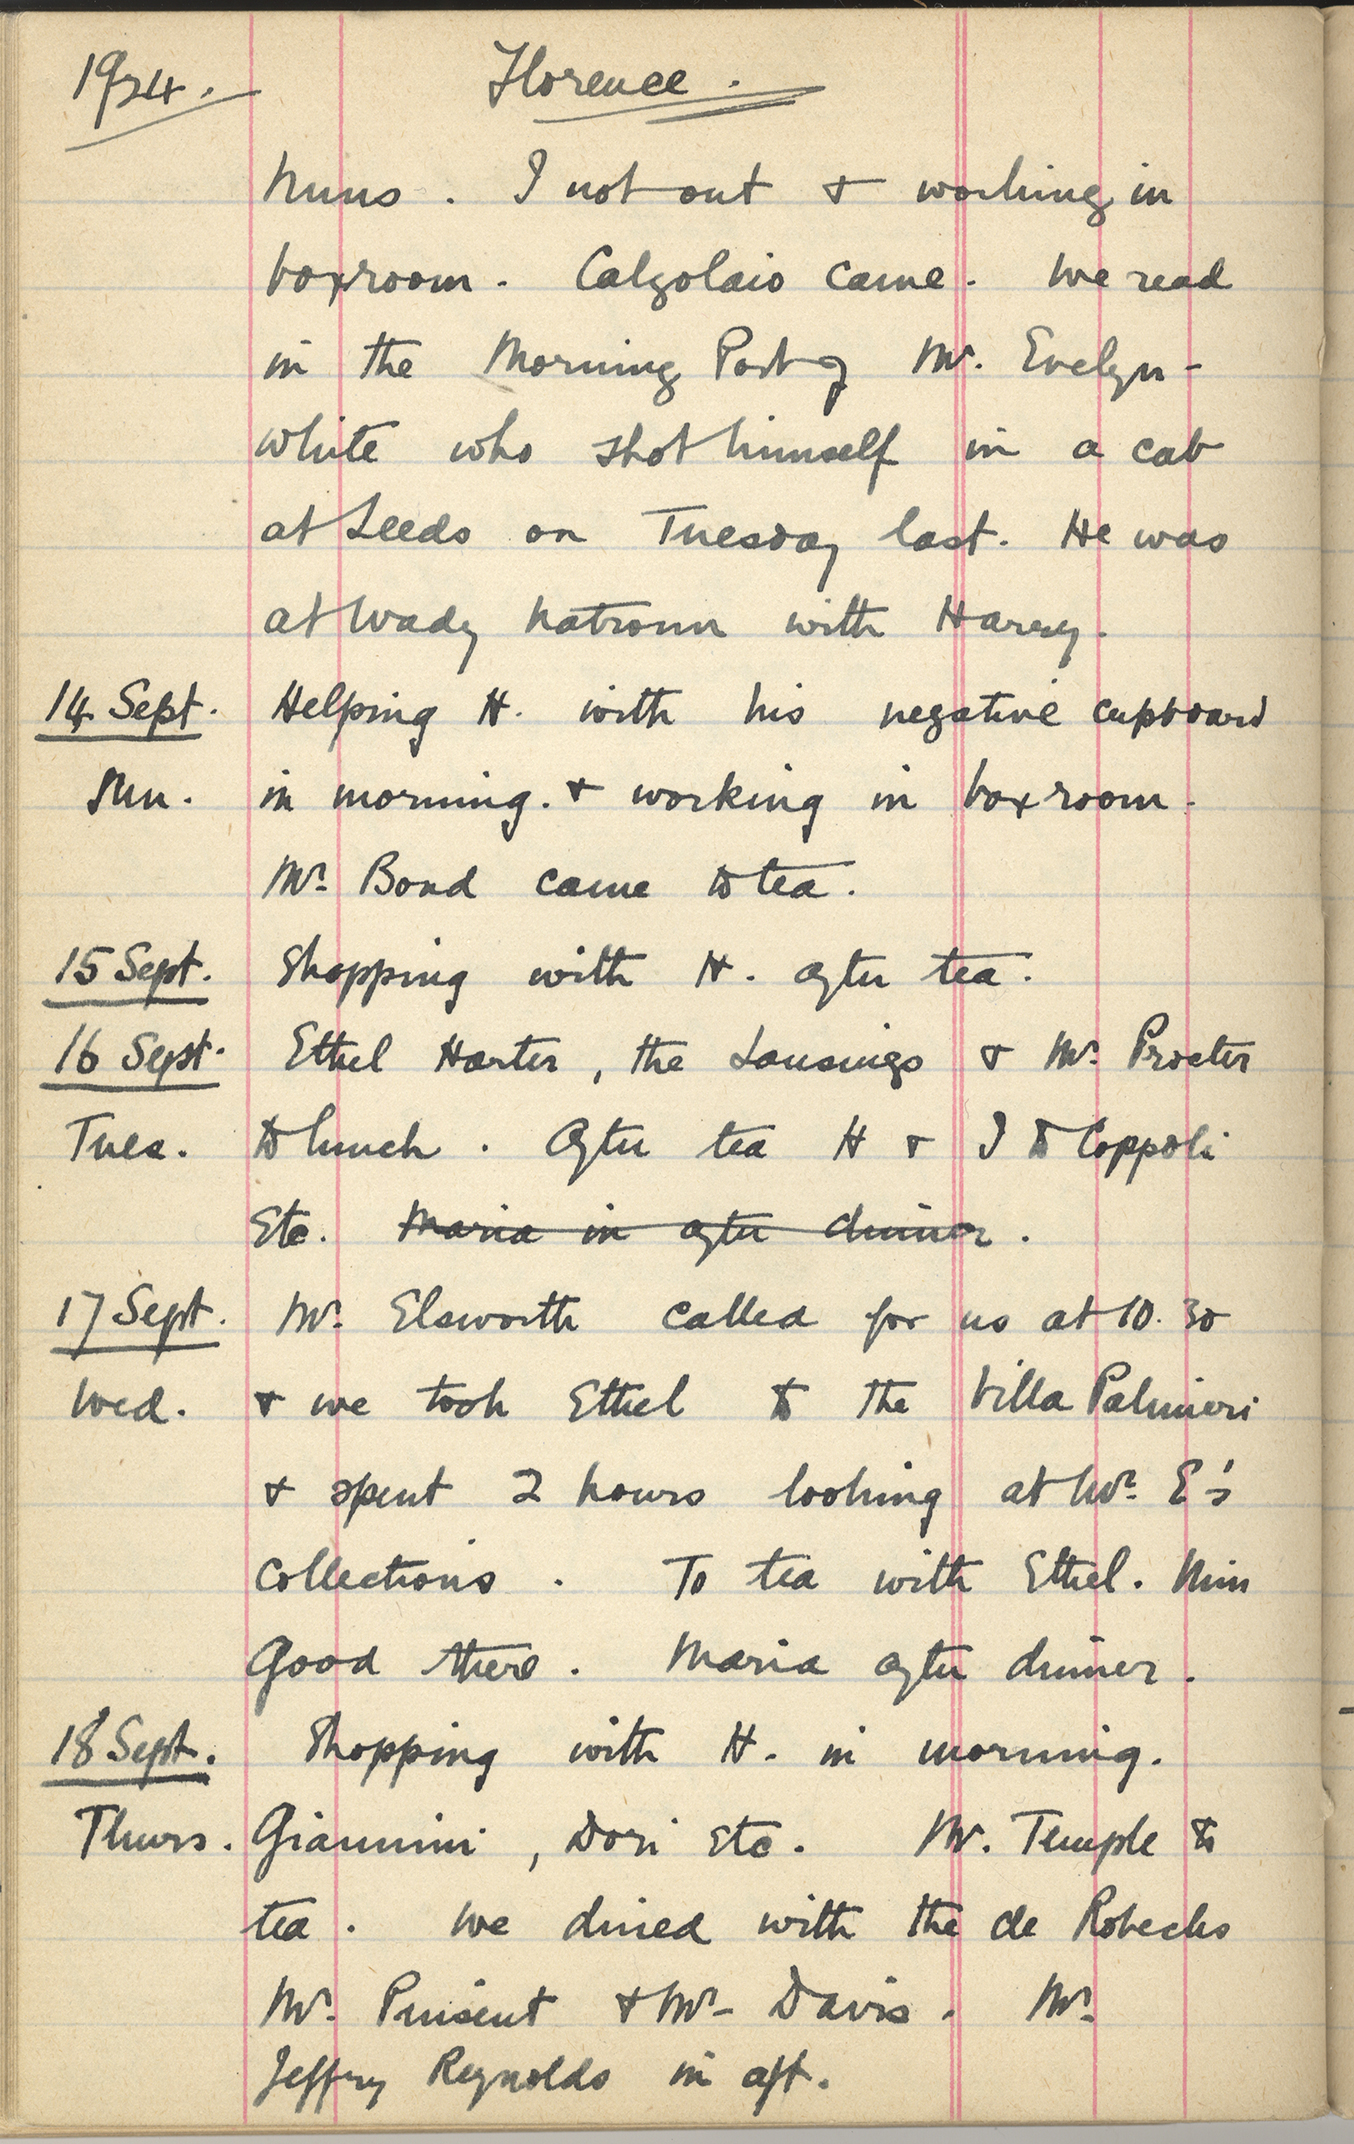 1924. Florence.
Nuns. I not out & working in
boxroom. Calzolaio came. We read
in the Morning Post of Mr. Evelyn-
White who shot himself in a cab
at Leeds on Tuesday last. He was
at Wady Natroun with Harry.
14 Sept. Helping H. with his negative cupboard
Sun. in morning. & working in boxroom.
Mr. Bond came to tea.
15 Sept. Shopping with H. after tea.
16 Sept. Ethel Harter, the Lansings & Mr. Procter
Tues. to lunch. After tea H & I to Coppoli
Etc. Maria in after dinner.
17 Sept. Mr. Elsworth called for us at 10.30
Wed. & we took Ethel to the Villa Palmieri
& spent 2 hours looking at Mr. E's
collections. To tea with Ethel. Mim
Good there. Maria after dinner.
18 Sept. Shopping with H. in morning.
Thurs. Giannini, Dori Etc. Mr. Temple to
tea. We dined with the de Robecks
Mr. Pinsent & Mr. Davis. Mr.
Jeffry Reynolds in aft.